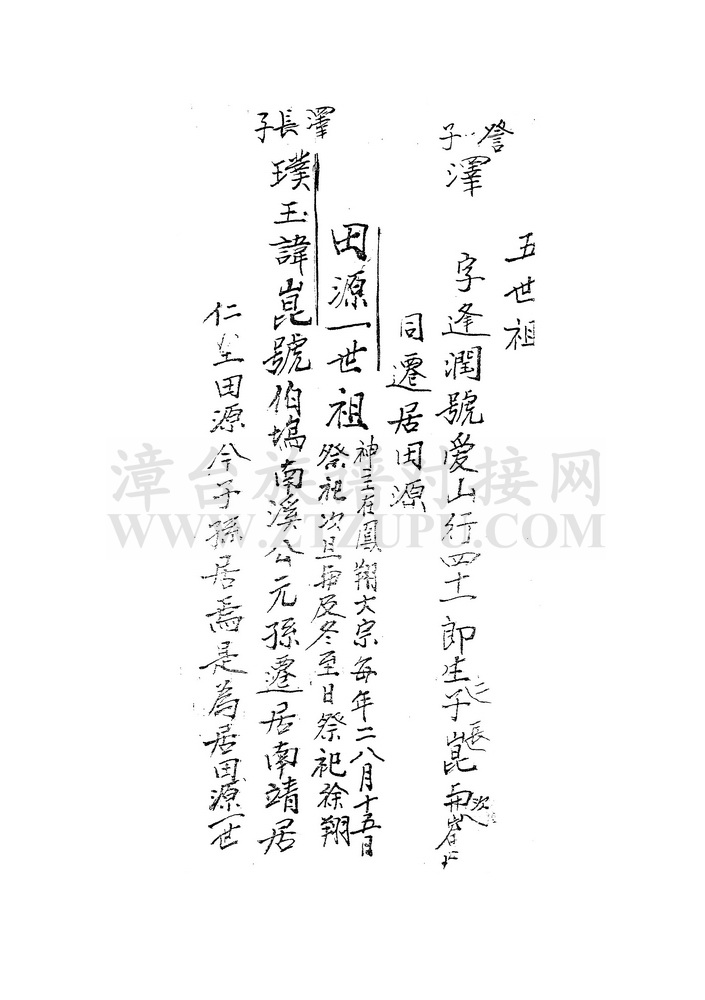 五世祖
詧子
澤
字逢潤號愛山行四十一郎生子二長崑次再
同遷居田源
田源一世祖
神主在鳳翔大宗每年二八月十五日
祭祀次旦再及冬至日祭祀徐翔
澤長子
璞玉諱崑號伯塢南溪公元孫遷居南靖居
仁里田源今子孫居焉是為居田源一世
漳台族譜对接网
WWW.ZTZUPU.COM